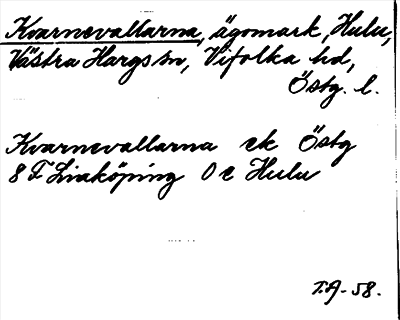 Kvarnevallarna, ägomark, Hulu,
Västra Hargs sn, Vifolka hd,
Östg. l.
Kvarnevallarna ek Östg
8 F Linköping 0 e Hulu
T.A-58.